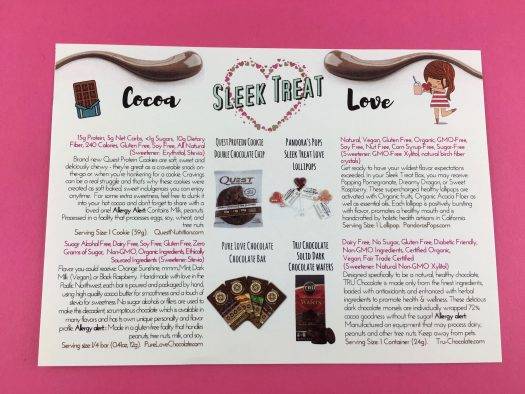 Cocoa
SLEEK TREAT
Love
15g Protein, 5g Net Carbs, <1g Sugars, 10g Dietary
Fiber, 240 Calories, Gluten Free, Soy Free, All Natural
(Sweetener: Erythritol, Stevia)
Brand new Quest Protein Cookies are soft, sweet and
deliciously chewy - they're great as a craveable snack on-
the-go or when you're hankering for a cookie. Cravings
can be a real struggle and that's why these cookies were
created as soft baked, sweet indulgences you can enjoy
anytime. For some extra sweetness, feel free to dunk it
into your hot cocoa and don't forget to share with a
loved one! Allergy Alert: Contains Milk, peanuts.
Processed in a facility that processes eggs, soy, wheat, and
tree nuts.
Serving Size: 1 Cookie (59g). QuestNutrition.com
Sugar Alcohol Free, Dairy Free, Soy Free, Gluten Free, Zero
Grams of Sugar, Non-GMO, Organic Ingredients, Ethically
Sourced Ingredients (Sweetener: Stevia)
Flavor you could receive: Orange Sunshine, mmm/Mint, Dark
Milk (Vegan), or Black Raspberry. Handmade with love in the
Pacific Northwest, each bar is poured and packaged by hand,
using high quality cocoa butter for smoothness and a touch of
stevia for sweetness. No sugar alcohols or fillers are used to
make this decadent, scrumptious chocolate which is available in
many flavors and has its own unique personality and flavor
profile. Allergy alert: Made in a gluten-free facility that handles
peanuts, tree nuts, milk, and soy.
Serving size: 1/4 bar (0.4oz, 12g). PureLoveChocolate.com
QUEST PROTEIN COOKIE
DOUBLE CHOCOLATE CHIP
QUEST
PANDORA'S POPS
SLEEK TREAT LOVE
LOLLIPOPS
PURE LOVE CHOCOLATE
CHOCOLATE BAR
TRU CHOCOLATE
SOLID DARK
CHOCOLATE WAFERS
TRU
Wafers
Natural, Vegan, Gluten Free, Organic, GMO-Free,
Soy Free, Nut Free, Corn Syrup-Free, Sugar-Free
(Sweetener: GMO-Free Xylitol, natural birch fiber
crystals)
Get ready to have your wildest flavor expectations
exceeded. In your Sleek Treat Box, you may receive
Popping Pomegranate, Dreamy Dragon, or Sweet
Raspberry. These supercharged healthy lollipops are
activated with Organic fruits, Organic Acacia Fiber as
well as essential oils. Each lollipop is positively bursting
with flavor, promotes a healthy mouth and is
handcrafted by holistic artisans in California.
Serving Size: 1 Lollipop. PandorasPops.com
Dairy Free, No Sugar, Gluten Free, Diabetic Friendly,
Non-GMO Ingredients, Certified Organic,
Vegan, Fair Trade Certified
(Sweetener: Natural Non-GMO Xylitol)
Designed specifically to be a natural, healthy chocolate,
TRU Chocolate is made only from the finest ingredients,
loaded with antioxidants and enhanced with herbal
ingredients to promote health & wellness. These delicious
dark chocolate morsels are individually wrapped 72%
cocoa goodness without the sugar! Allergy alert:
Manufactured on equipment that may process dairy,
peanuts and other tree nuts. Keep away from pets.
Serving Size: 1 Container (24g). Tru-Chocolate.com